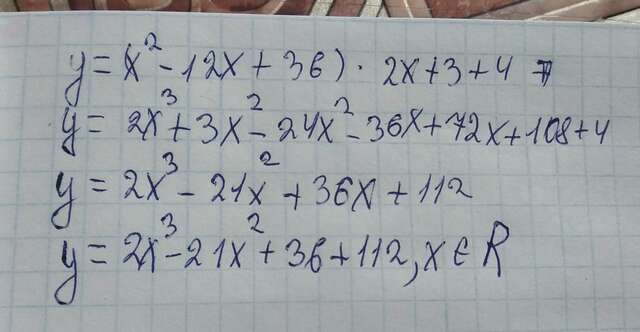 y = (x² - 12x + 36) · 2x + 3 + 4 =
y = 2x³ + 3x² - 24x² - 36x + 72x + 108 + 4
y = 2x³ - 21x² + 36x + 112
y = 2x³ - 21x² + 36 + 112, x ∈ R